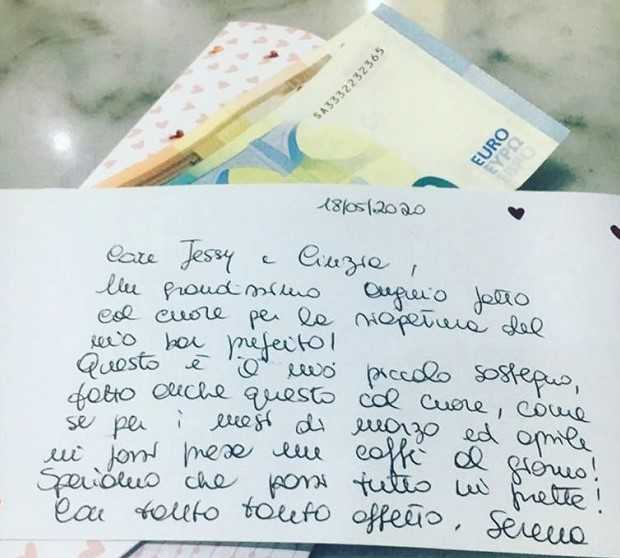 SA3332232365
EURO
ΕΥΡΩ
18/05/2020
Care Jessy e Cinzia,
Un grandissimo augurio fatto
col cuore per la riapertura del
mio bar preferito!
Questo è il mio piccolo sostegno,
fatto anche questo col cuore, come
se per i mesi di marzo ed aprile
mi fossi presa un caffè al giorno!
Speriamo che passi tutto in fretta!
Con tanto tanto affetto, Serena